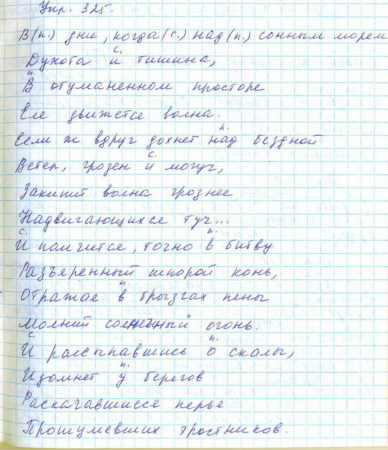 Упр. 325.
В(п.) дни, когда(с.) над(п.) сонным морем
Духота и с. тишина,
В п. отуманенном просторе
Еле движется волна.
Если ж вдруг дохнет над п. бездной
Ветер, грозен и с. могуч,
Закипит волна грознее
Надвигающихся туч...
И с. помчится, точно в п. битву
Разъяренный шпорой конь,
Отражая в п. брызгах пены
Молний солнный огонь.
И с. рассыпавшись о п. скалы,
Изомнет у п. берегов
Раскачавшиеся перья
Прошумевших тростников.